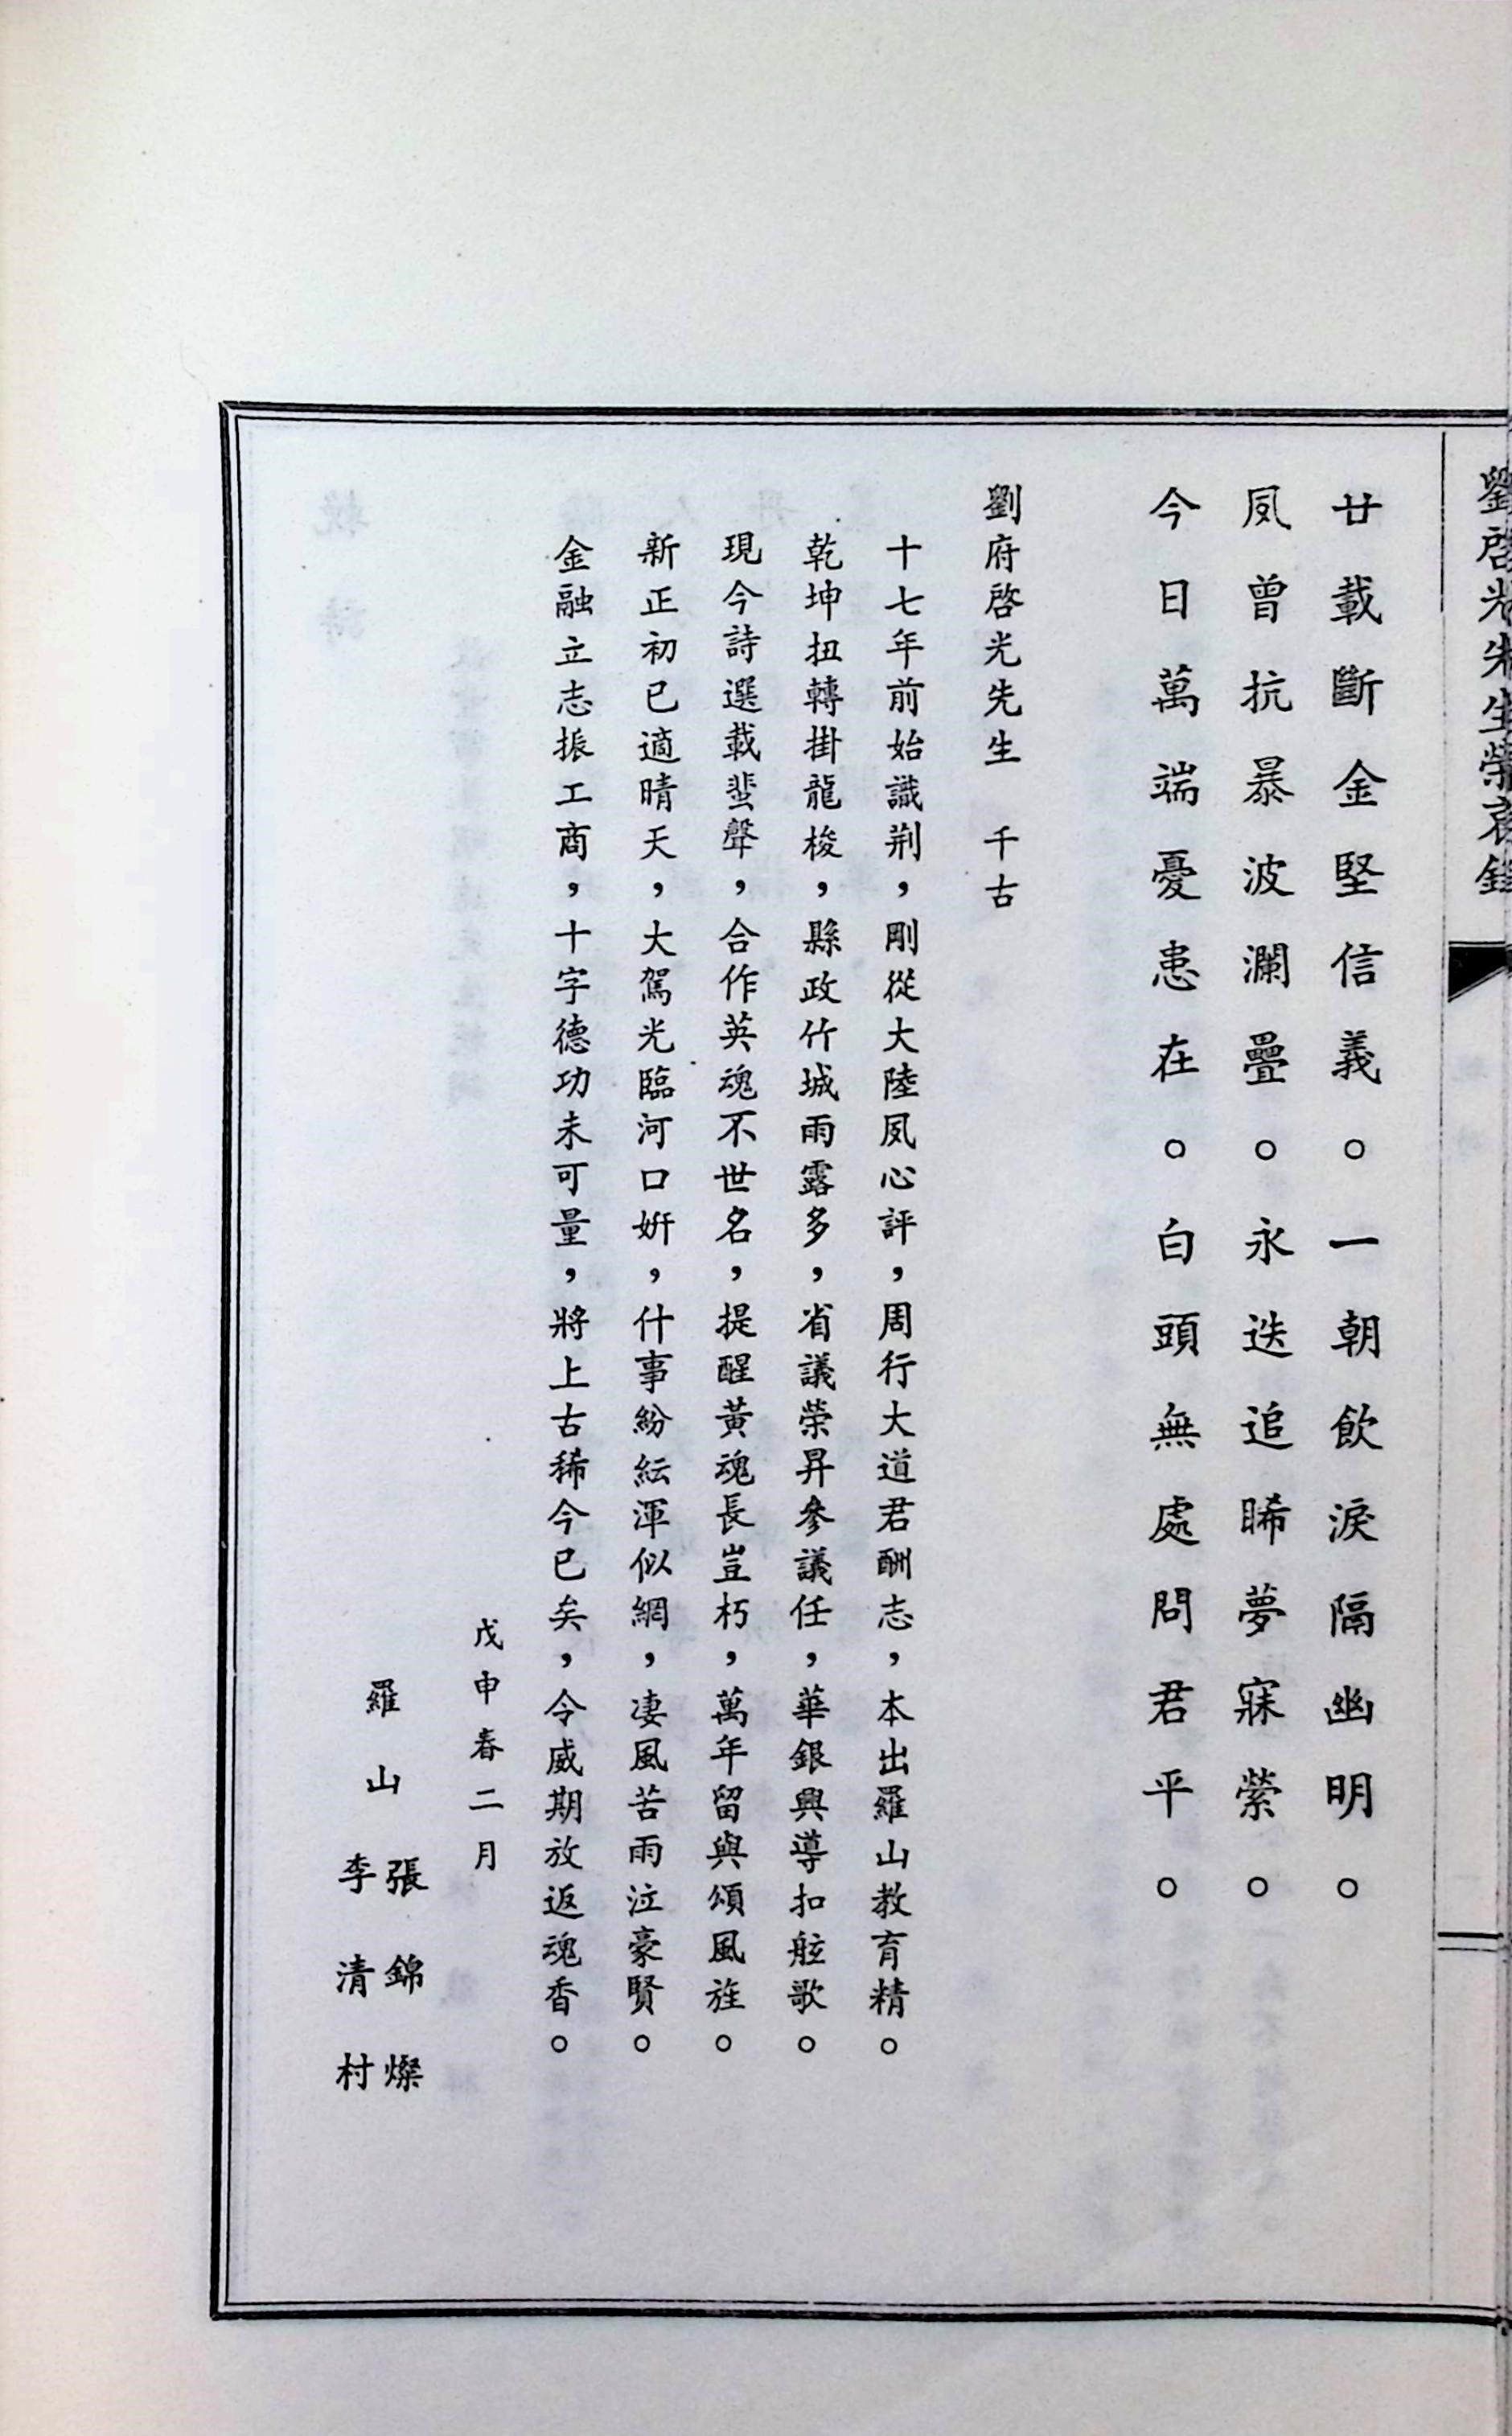 劉啓光先生榮哀錄
廿載斷金堅信義。一朝飲淚隔幽明。
夙曾抗暴波瀾疊。永迭追晞夢寐縈。
今日萬端憂患在。白頭無處問君平。
劉府啓光先生　千古
十七年前始識荆，剛從大陸夙心評，周行大道君酬志，本出羅山教育精。
乾坤扭轉掛龍梭，縣政竹城雨露多，省議榮昇參議任，華銀興導扣舷歌。
現今詩選載蜚聲，合作英魂不世名，提醒黃魂長豈朽，萬年留與頌風旌。
新正初已適晴天，大駕光臨河口妍，什事紛紜渾似網，凄風苦雨泣豪賢。
金融立志振工商，十字德功未可量，將上古稀今已矣，令威期放返魂香。
戊申春二月
羅山　張錦燦
李清村